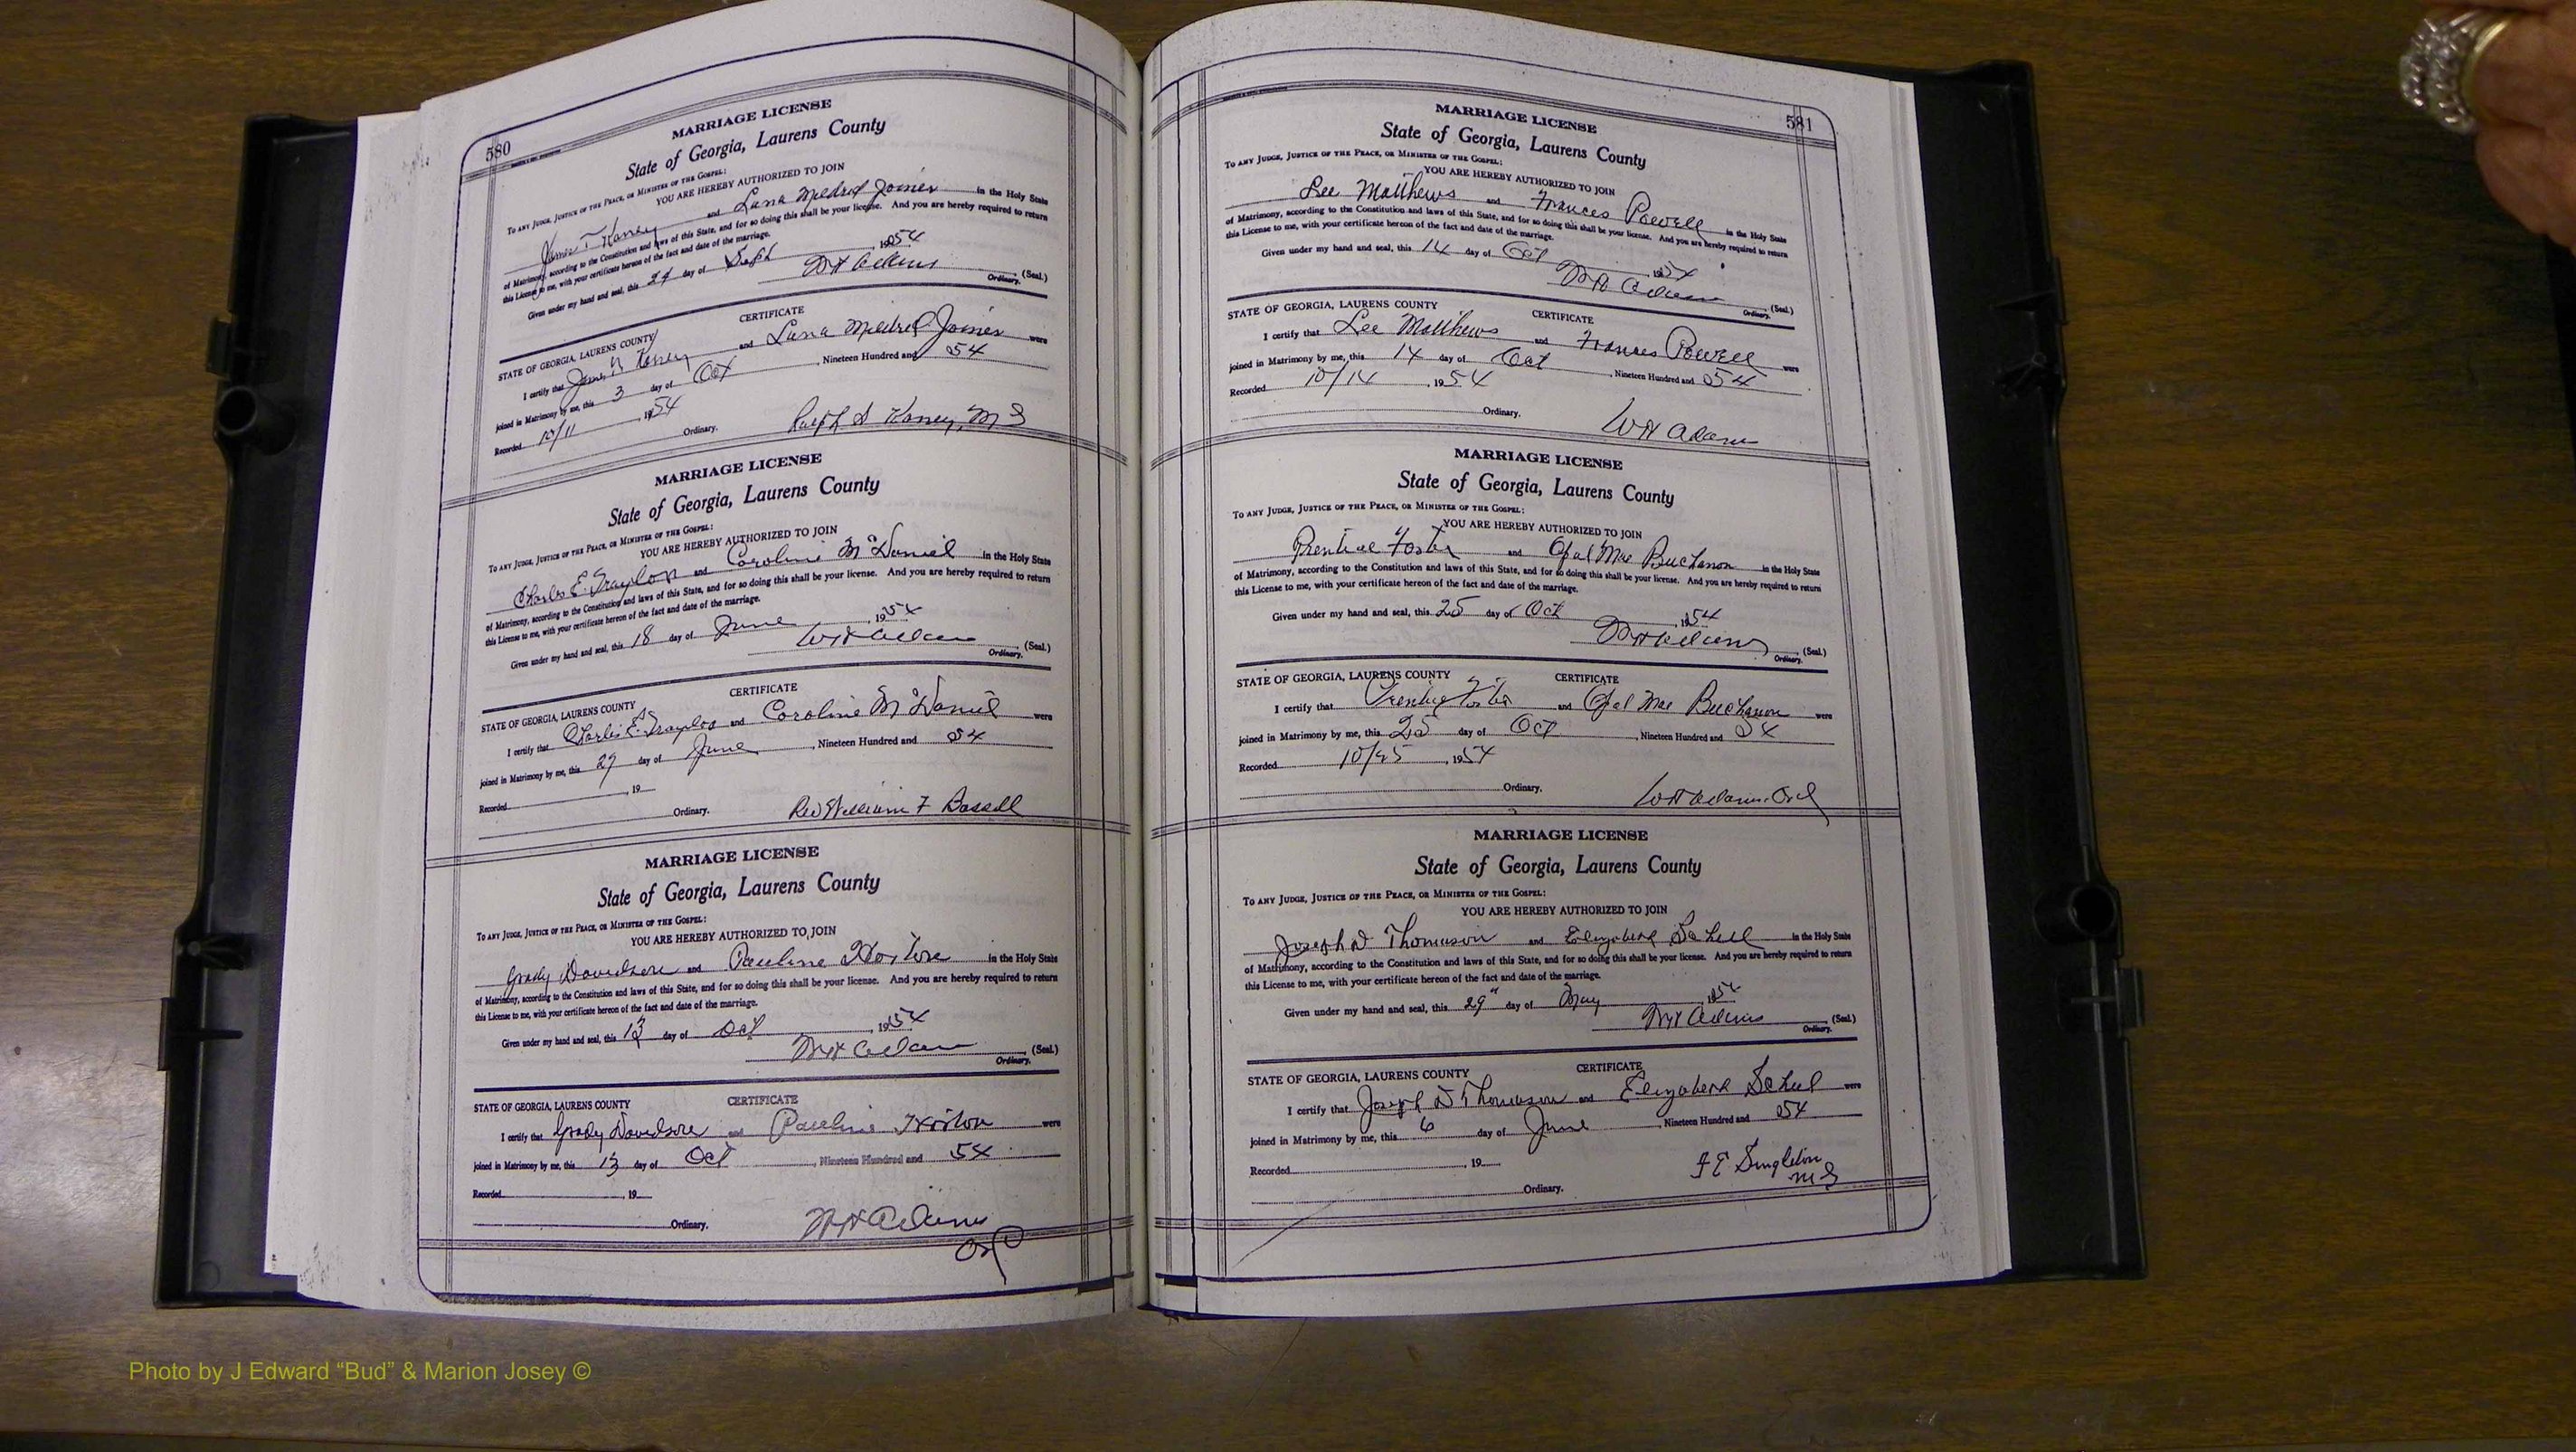 580
MARRIAGE LICENSE
State of Georgia, Laurens County
TO ANY JUDGE, JUSTICE OF THE PEACE, OR MINISTER OF THE GOSPEL:
YOU ARE HEREBY AUTHORIZED TO JOIN
James T and Mildred Joiner in the Holy State
of Matrimony, according to the Constitution and laws of this State, and for so doing this shall be your license. And you are hereby required to return
this License to me, with your certificate hereon of the fact and date of the marriage.
Given under my hand and seal, this 24 day of Sept, 1954
W H Adams (Seal.)
Ordinary.
CERTIFICATE
STATE OF GEORGIA, LAURENS COUNTY
I certify that and Mildred Joiner were
joined in Matrimony by me, this 3 day of Oct, Nineteen Hundred and 54
Recorded 10/11, 1954
Ordinary.
Ralph
MARRIAGE LICENSE
State of Georgia, Laurens County
TO ANY JUDGE, JUSTICE OF THE PEACE, OR MINISTER OF THE GOSPEL:
YOU ARE HEREBY AUTHORIZED TO JOIN
Charles E. Traylor and Caroline McDaniel in the Holy State
of Matrimony, according to the Constitution and laws of this State, and for so doing this shall be your license. And you are hereby required to return
this License to me, with your certificate hereon of the fact and date of the marriage.
Given under my hand and seal, this 18 day of June, 1954
W H Adams (Seal.)
Ordinary.
CERTIFICATE
STATE OF GEORGIA, LAURENS COUNTY
I certify that Charles E. Traylor and Caroline McDaniel were
joined in Matrimony by me, this day of June, Nineteen Hundred and 54
Recorded, 19
Ordinary.
Rev William F
MARRIAGE LICENSE
State of Georgia, Laurens County
TO ANY JUDGE, JUSTICE OF THE PEACE, OR MINISTER OF THE GOSPEL:
YOU ARE HEREBY AUTHORIZED TO JOIN
Grady Davidson and Pauline Horton in the Holy State
of Matrimony, according to the Constitution and laws of this State, and for so doing this shall be your license. And you are hereby required to return
this License to me, with your certificate hereon of the fact and date of the marriage.
Given under my hand and seal, this 13 day of Oct, 1954
W H Adams (Seal.)
Ordinary.
CERTIFICATE
STATE OF GEORGIA, LAURENS COUNTY
I certify that Grady Davidson and Pauline Horton were
joined in Matrimony by me, this 13 day of Oct, Nineteen Hundred and 54
Recorded, 19
Ordinary.
W H Adams
Ord
581
MARRIAGE LICENSE
State of Georgia, Laurens County
TO ANY JUDGE, JUSTICE OF THE PEACE, OR MINISTER OF THE GOSPEL:
YOU ARE HEREBY AUTHORIZED TO JOIN
Lee Matthews and Frances Powell in the Holy State
of Matrimony, according to the Constitution and laws of this State, and for so doing this shall be your license. And you are hereby required to return
this License to me, with your certificate hereon of the fact and date of the marriage.
Given under my hand and seal, this 14 day of Oct, 1954
W H Adams (Seal.)
Ordinary.
STATE OF GEORGIA, LAURENS COUNTY
CERTIFICATE
I certify that Lee Matthews and Frances Powell were
joined in Matrimony by me, this 14 day of Oct, Nineteen Hundred and 54
Recorded 10/14, 1954
Ordinary.
W H Adams
MARRIAGE LICENSE
State of Georgia, Laurens County
TO ANY JUDGE, JUSTICE OF THE PEACE, OR MINISTER OF THE GOSPEL:
YOU ARE HEREBY AUTHORIZED TO JOIN
Foster and Opal Mae Buchanon in the Holy State
of Matrimony, according to the Constitution and laws of this State, and for so doing this shall be your license. And you are hereby required to return
this License to me, with your certificate hereon of the fact and date of the marriage.
Given under my hand and seal, this 25 day of Oct, 1954
W H Adams (Seal.)
Ordinary.
STATE OF GEORGIA, LAURENS COUNTY
CERTIFICATE
I certify that Foster and Opal Mae Buchanon were
joined in Matrimony by me, this 25 day of Oct, Nineteen Hundred and 54
Recorded 10/25, 1954
Ordinary.
W H Adams, Ord
MARRIAGE LICENSE
State of Georgia, Laurens County
TO ANY JUDGE, JUSTICE OF THE PEACE, OR MINISTER OF THE GOSPEL:
YOU ARE HEREBY AUTHORIZED TO JOIN
Joseph D Thomason and Elizabeth in the Holy State
of Matrimony, according to the Constitution and laws of this State, and for so doing this shall be your license. And you are hereby required to return
this License to me, with your certificate hereon of the fact and date of the marriage.
Given under my hand and seal, this 29" day of May, 1954
W H Adams (Seal.)
Ordinary.
CERTIFICATE
STATE OF GEORGIA, LAURENS COUNTY
I certify that Joseph D Thomason and Elizabeth were
joined in Matrimony by me, this 6 day of June, Nineteen Hundred and 54
Recorded, 19
Ordinary.
Singleton
Photo by J Edward “Bud” & Marion Josey ©